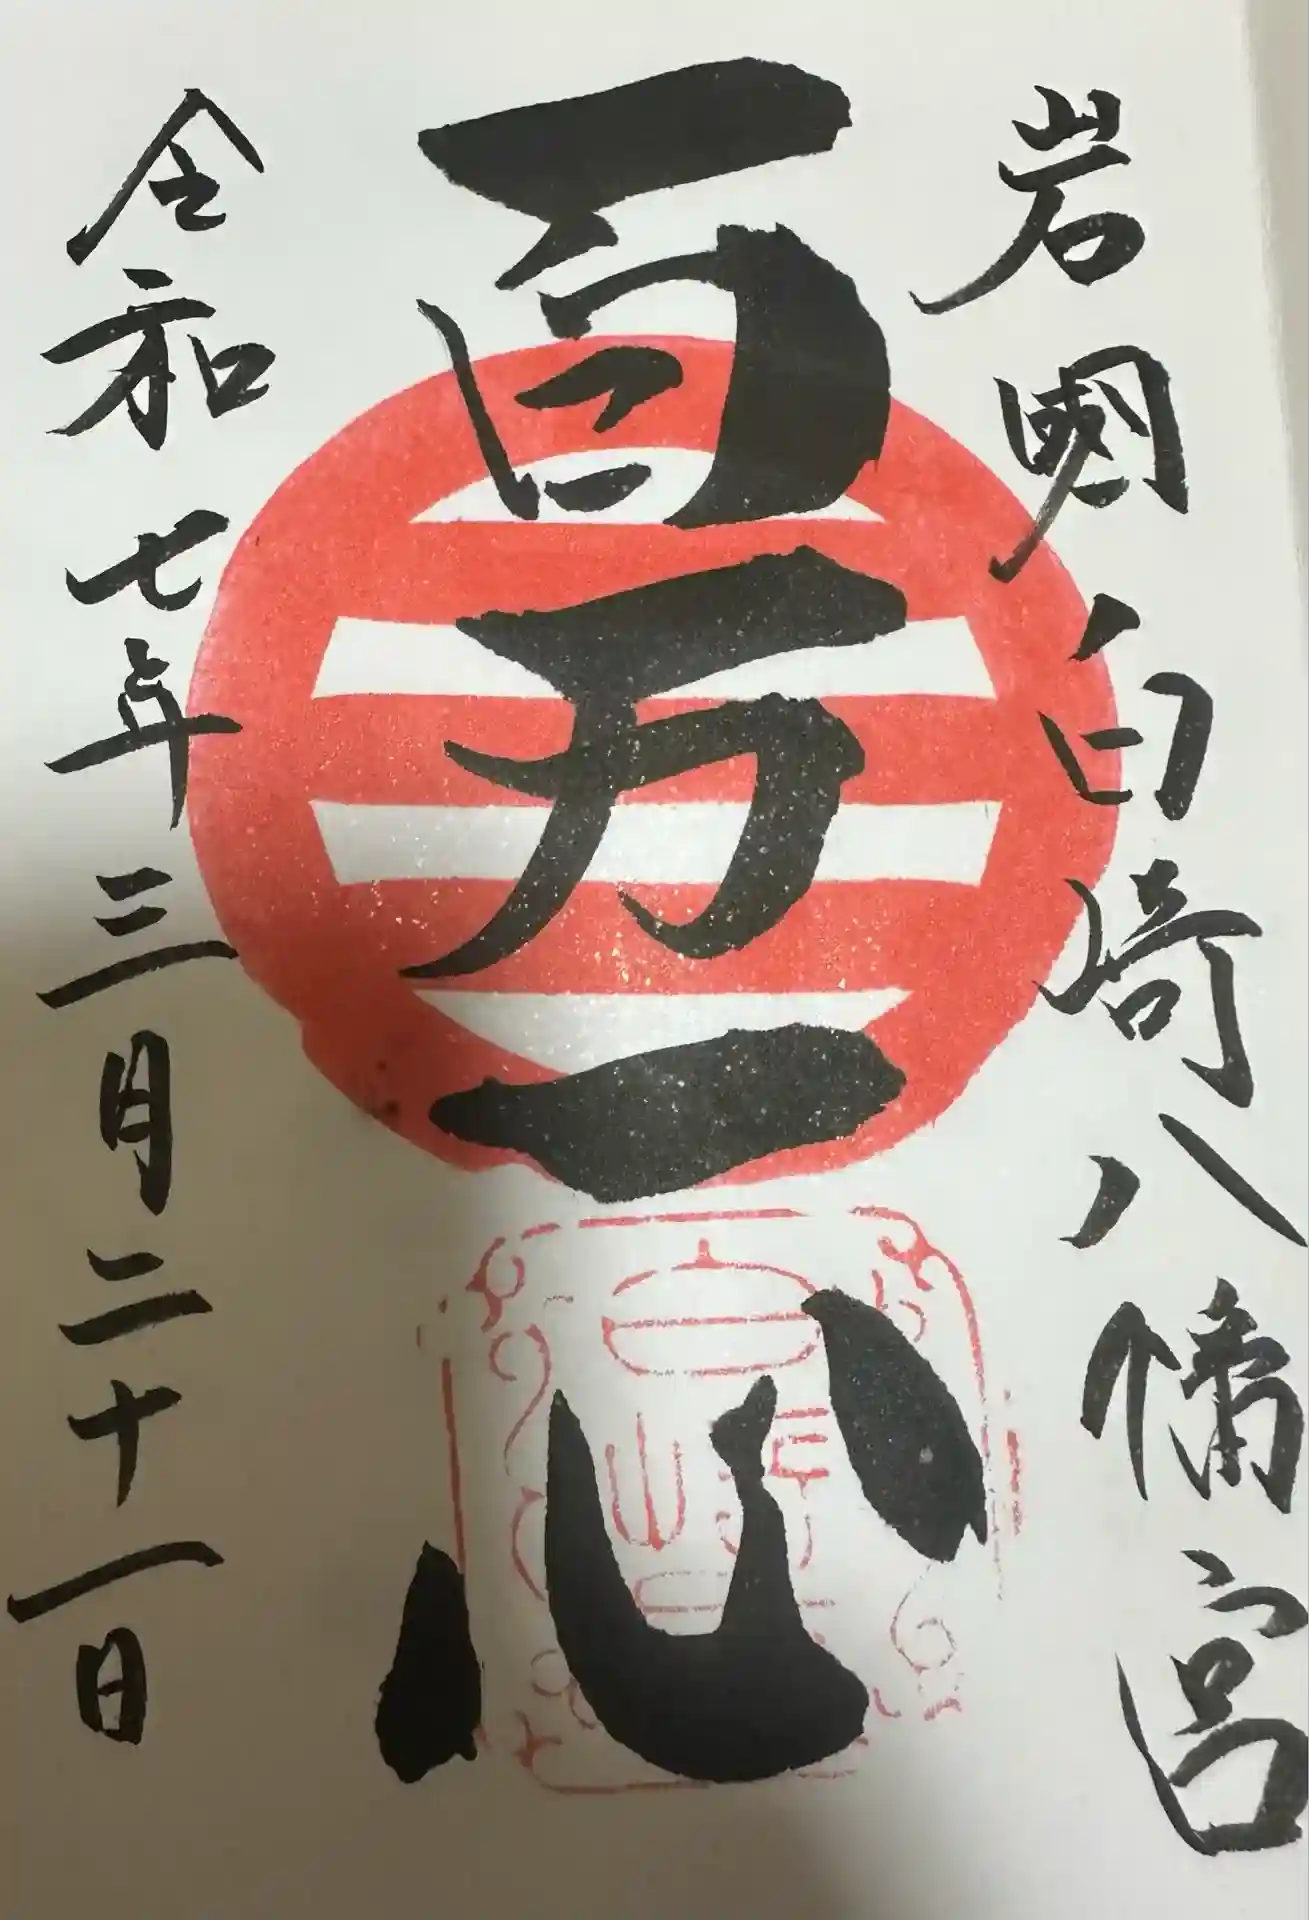 岩國白崎八幡宮
百万一心
令和七年三月二十一日